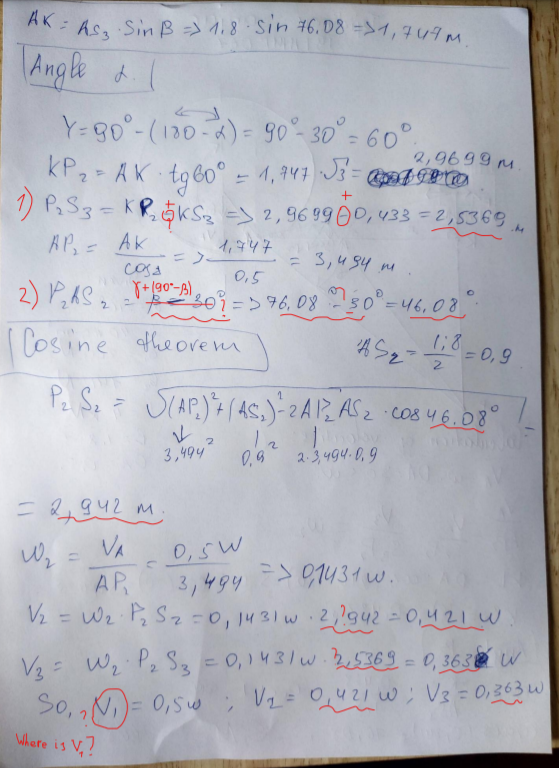 AK = AS₃ · Sin β => 1.8 · sin 76.08 => 1,747 м.
Angle α.
Y = 90° - (180 - α) = 90° - 30° = 60°
2,9699 м.
KP₂ = AK · tg60° = 1,747 · √3 =
1) P₂S₃ = KP₂ + KS₃ => 2,9699 + 0,433 = 2,5369 м
AP₂ = AK / cosα => 1,747 / 0,5 = 3,494 м.
γ+(90°-β)
2) P₂AS₂ = β - 30°? => 76.08° -? 30° = 46.08°
Cosine theorem
AS₂ = 1.8 / 2 = 0,9
P₂S₂ = √(AP₂)² + (AS₂)² - 2AP₂ AS₂ · cos 46.08° =
3,494² 0,9² 2·3,494·0,9
= 2,942 м.
W₂ = VA / AP₂ = 0,5W / 3,494 => 0,1431w.
V₂ = W₂ · P₂S₂ = 0,1431w · ? 2,942 = 0,421 W
V₃ = W₂ · P₂S₃ = 0,1431w · ? 2,5369 = 0,363 W
So, ? V₁ = 0,5w ; V₂ = 0,421w ; V₃ = 0,363w
Where is V₁?